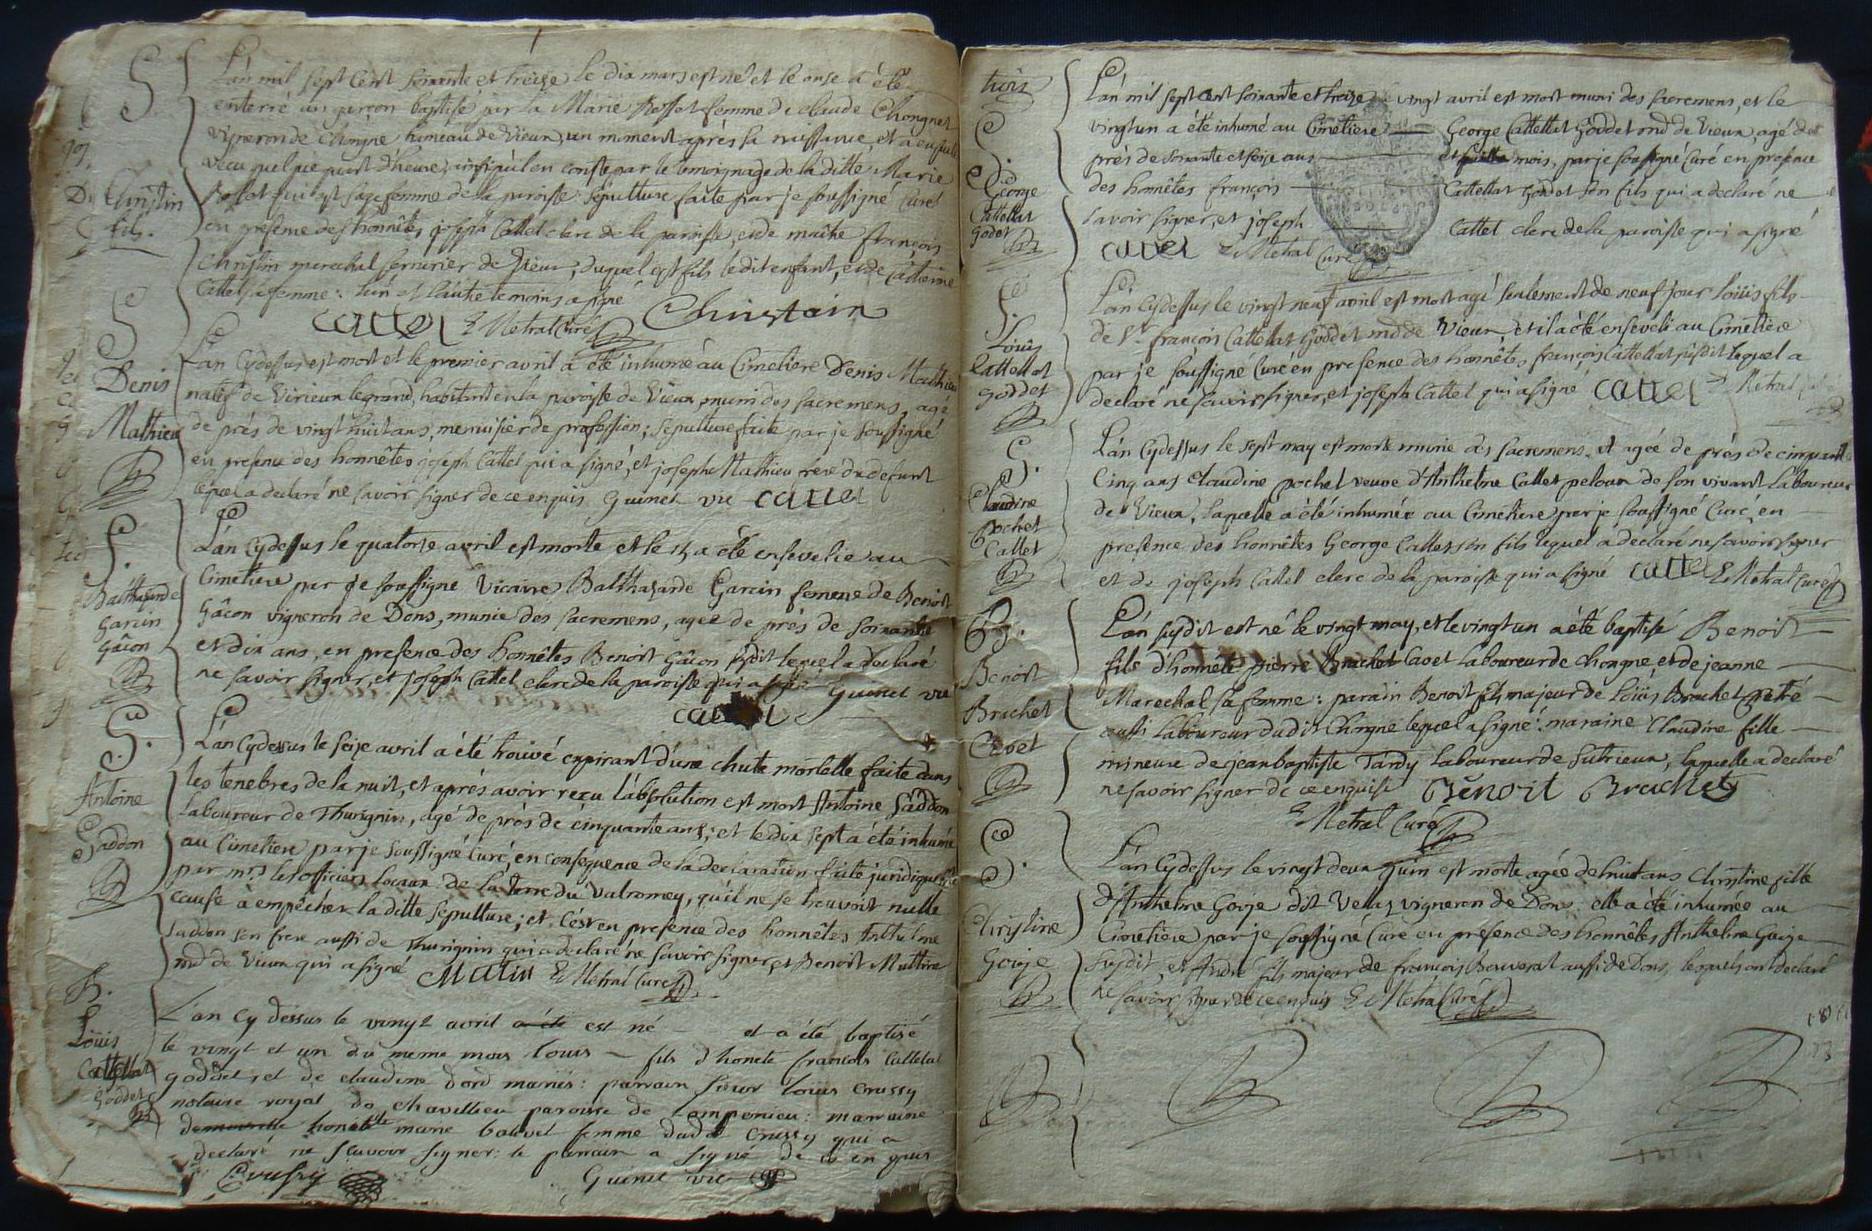 S.
D. Christin
fils.
L'an mil sept cent soixante et treize le dix mars est né et le onse a été
enterré un garçon baptisé par la Marie Rosset femme de claude Chongnet
vigneron de Chongne hameau de Vieux, un moment après sa naissance, et a ensuite
vécu quelque quart d'heure, ainsi qu'il en conste par le temoignage de laditte Marie
Rosset qui est sage femme de la paroisse. Sépulture faite par je soussigné Curé
en presence des honnêtes joseph Cattet clerc de la paroisse, et de maître françois
Christin marechal serrurier de Vieux, duquel est fils ledit enfant, et de Catterine
Cattet sa femme: l'un et l'autre temoins a signé
Cattet E Metral Curé Christain
S
Denis
Mathieu
L'an cydessus est mort et le premier avril a été inhumé au Cimetiere Denis Mathieu
natif de Virieux legrand, habitant en la paroisse de Vieux, muni des sacremens, agé
de près de vingt huit ans, menuisier de profession; sepulture faite par je soussigné
en presence des honnêtes joseph Cattet qui a signé, et joseph Mathieu frere du defunt
lequel a declaré ne savoir signer de ce enquis. Guinet vic Cattet
S.
Balthazarde
Garcin
Gâcon
L'an cydessus le quatorse avril est morte et le 15 a été ensevelie au
Cimetiere par je soussigné Vicaire Balthazarde Garcin femme de Benoit
Gâcon vigneron de Dons, munie des sacremens, agée de près de soixante
et dix ans, en presence des honnêtes Benoit Gâcon susdit lequel a declaré
ne savoir signer, et joseph Cattet clerc de la paroisse qui a signé Guinet vic
Cattet
S.
Antoine
Saddon
L'an cydessus le seize avril a été trouvé expirant d'une chute mortelle faite dans
les tenebres de la nuit, et après avoir reçu l'absolution est mort Antoine Saddon
laboureur de Thurignin, agé de près de cinquante ans; et le dix sept a été inhumé
au Cimetiere par je soussigné Curé, en consequence de la declaration faite juridiquement
par mrs les officiers locaux de la terre du Valromey, qu'il ne se trouvoit nulle
cause à empêcher la ditte sépulture; et c'est en presence des honnêtes Anthelme
Saddon son frere aussi de Thurignin qui a declaré ne savoir signer, et Benoit Muttin
md de Vieux qui a signé Matin E Metral Curé
B.
Loüis
Cattellat
Goddet
L'an cy dessus le vingt avril a été est né et a été baptisé
le vingt et un du meme mois Louis fils d'honete francois Cattelat
goddet, et de claudine dord mariés: parrain sieur Louis Crussy
notaire royal de chavillieu paroisse de Lomponieu: marraine
demoiselle honette marie bauvet femme dudit Crussy qui a
declaré ne sçavoir signer: le parrain a signé de ce enquis
Crussy Guinet vic
trois
S.
George
Cattellat
Godet
L'an mil sept cent soixante et treize vingt avril est mort muni des sacremens, et le
vingt un a été inhumé au Cimetiere George Cattellat Goddet md de Vieux, agé de
près de soixante et seize ans et mois, par je soussigné Curé en presence
des honnêtes françois Cattellat Goddet son fils qui a declaré ne
savoir signer, et joseph Cattet clerc de la paroisse qui a signé
Cattet E Metral Curé
S.
Loüis
Cattellat
goddet
L'an cydessus le vingt neuf avril est mort agé seulement de neuf jour Loüis fils
de Sr françois Cattellat Goddet md de Vieux, et il a été enseveli au Cimetière
par je soussigné Curé en presence des honnêtes, françois Cattellat susdit lequel a
declaré ne savoir signer, et joseph Cattet qui a signé Cattet E Metral
S.
Claudine
Pochet
Cattet
L'an cydessus le sept may est morte munie des sacremens, et agée de près de cinquante
cinq ans Claudine pochet veuve d'Anthelme Cattet peloux de son vivant Laboureur
de Vieux, laquelle a été inhumée au Cimetiere par je soussigné Curé, en
presence des honnêtes George Cattet son fils lequel a declaré ne savoir signer
et de joseph Cattet clerc de la paroisse qui a signé Cattet E Metral Curé
B.
Benoit
Bruchet
Cavet
L'an susdit est né le vingt may, et le vingt un a été baptisé Benoit
fils d'honnête pierre Bruchet Cavet laboureur de Chongne, et de jeanne
Marechal sa femme: parain Benoit fils majeur de Loüis Bruchet
aussi laboureur dudit Chongne lequel a signé: maraine Claudine fille
mineure de jeanbaptiste Tardy laboureur de Sutrieux, laquelle a declaré
ne savoir signer de ce enquise Benoit Bruchet
E Metral Curé
S.
Christine
Goije
L'an cydessus le vingt deux juin est morte agée de huit ans Christine fille
d'Anthelme Goije dit Velaz vigneron de Dons: elle a été inhumée au
Cimetiere par je soussigné Curé en presence des honnêtes Anthelme Goije
susdit, et André fils majeur de françois Beauverat aussi de Dons, lesquels ont declaré
ne savoir signer de ce enquis E Metral Curé